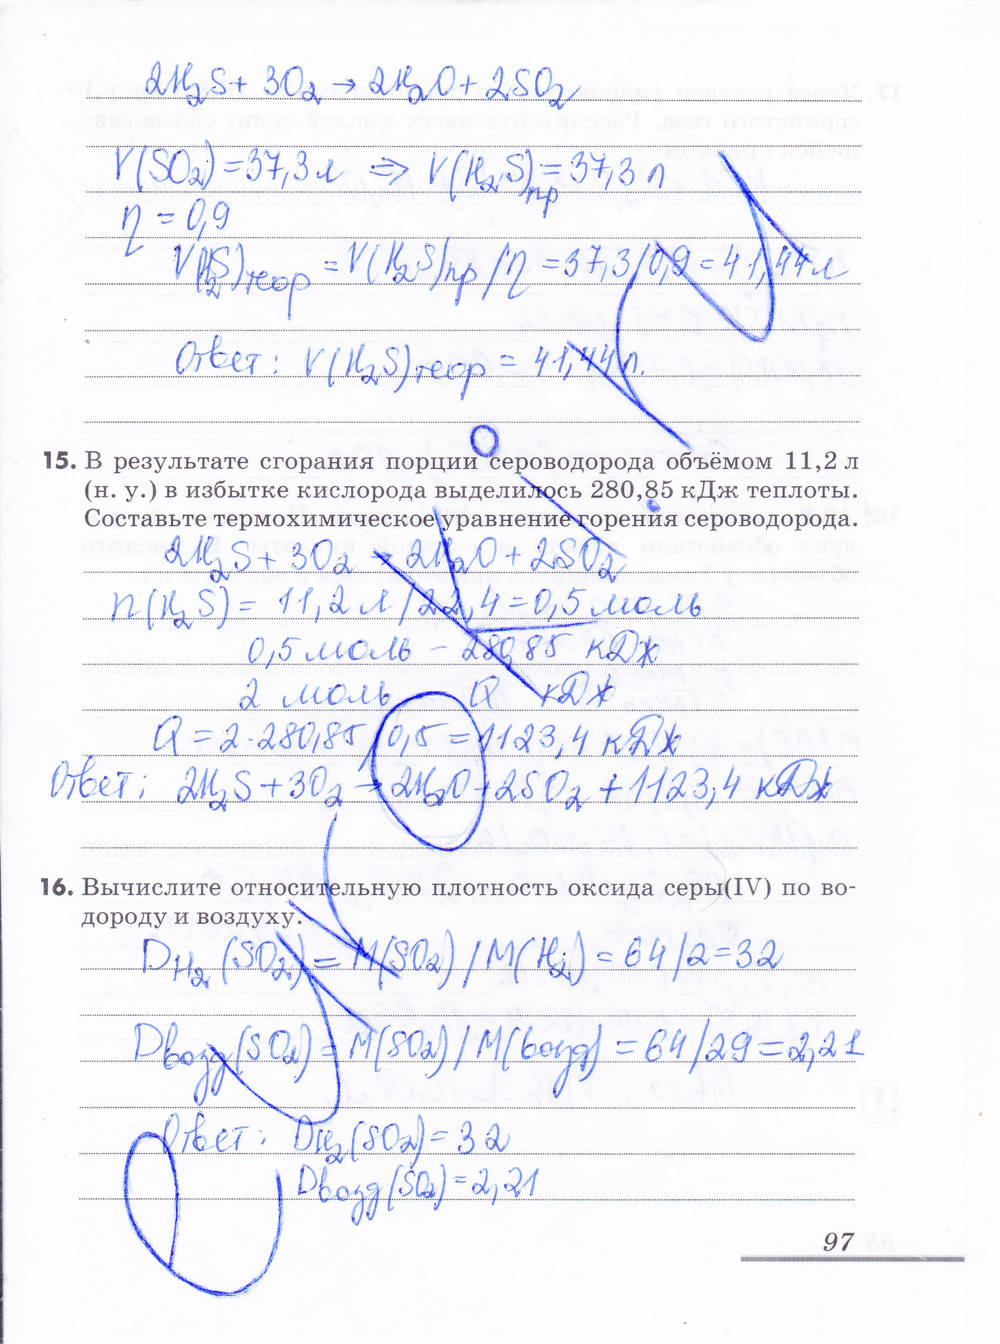 2H₂S + 3O₂ → 2H₂O + 2SO₂
V(SO₂) = 37,3 л ⇒ V(H₂S)пр = 37,3 л
η = 0,9
V(H₂S)теор = V(H₂S)пр / η = 37,3/0,9 = 41,44 л
Ответ: V(H₂S)теор = 41,44 л.
15. В результате сгорания порции сероводорода объёмом 11,2 л
(н. у.) в избытке кислорода выделилось 280,85 кДж теплоты.
Составьте термохимическое уравнение горения сероводорода.
2H₂S + 3O₂ → 2H₂O + 2SO₂
n(H₂S) = 11,2 л / 22,4 = 0,5 моль
0,5 моль – 280,85 кДж
2 моль Q кДж
Q = 2·280,85/0,5 = 1123,4 кДж
Ответ: 2H₂S + 3O₂ → 2H₂O + 2SO₂ + 1123,4 кДж
16. Вычислите относительную плотность оксида серы(IV) по во-
дороду и воздуху.
DH₂(SO₂) = M(SO₂) / M(H₂) = 64/2 = 32
Dвозд(SO₂) = M(SO₂) / M(возд) = 64/29 = 2,21
Ответ: DH₂(SO₂) = 32
Dвозд(SO₂) = 2,21
97